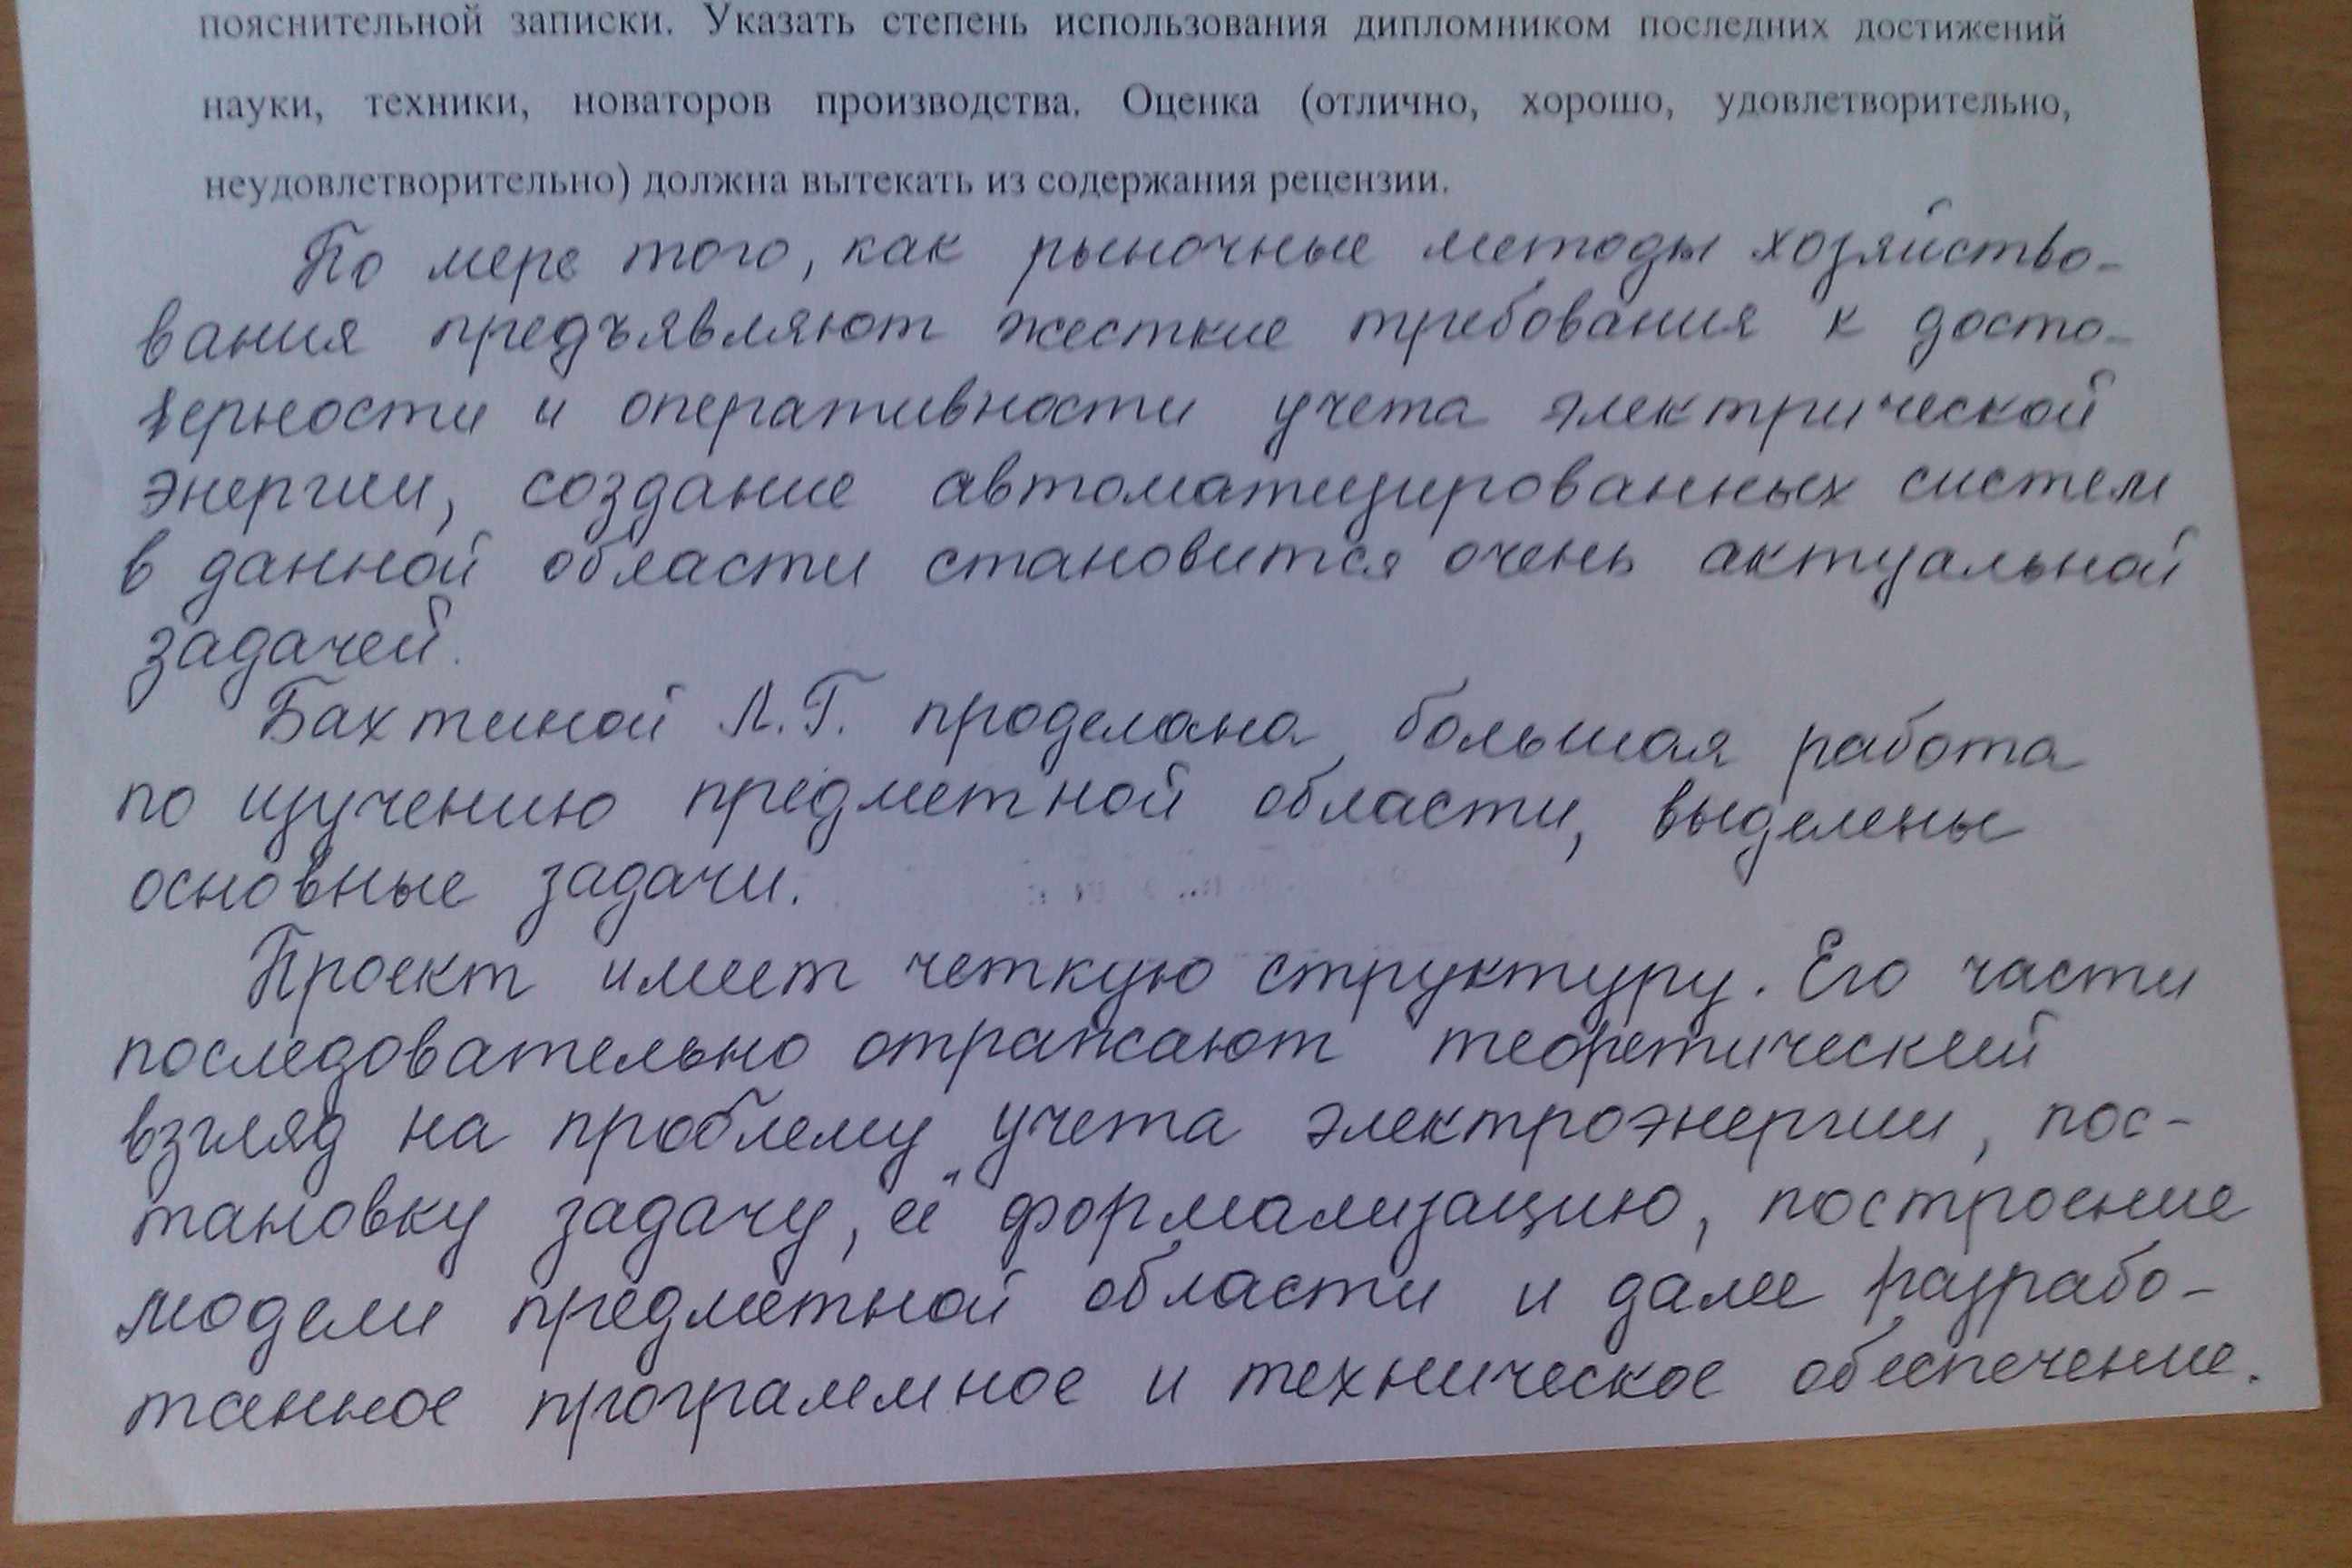 пояснительной записки. Указать степень использования дипломником последних достижений
науки, техники, новаторов производства. Оценка (отлично, хорошо, удовлетворительно,
неудовлетворительно) должна вытекать из содержания рецензии.
По мере того, как рыночные методы хозяйство-
вания предъявляют жесткие требования к досто-
верности и оперативности учета электрической
энергии, создание автоматизированных систем
в данной области становится очень актуальной
задачей.
Бахтиной Л.Г. проделана большая работа
по изучению предметной области, выделены
основные задачи.
Проект имеет четкую структуру. Его части
последовательно отражают теоретический
взгляд на проблему учета электроэнергии, пос-
тановку задачу, её формализацию, построение
модели предметной области и далее разрабо-
танное программное и техническое обеспечение.